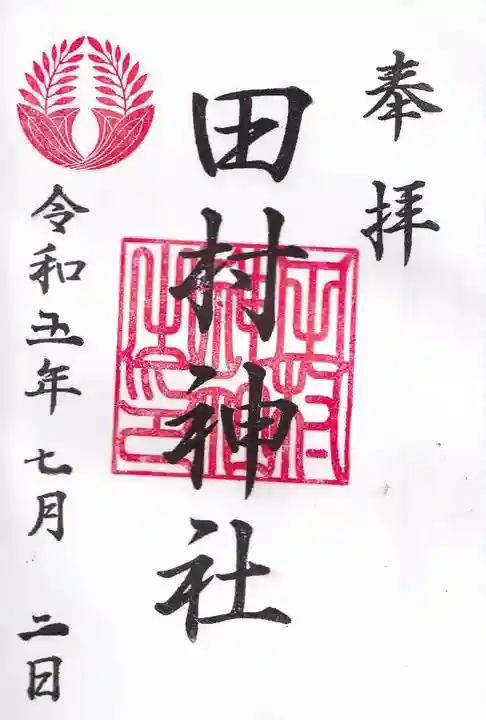 奉拝
田村神社
令和五年七月二日